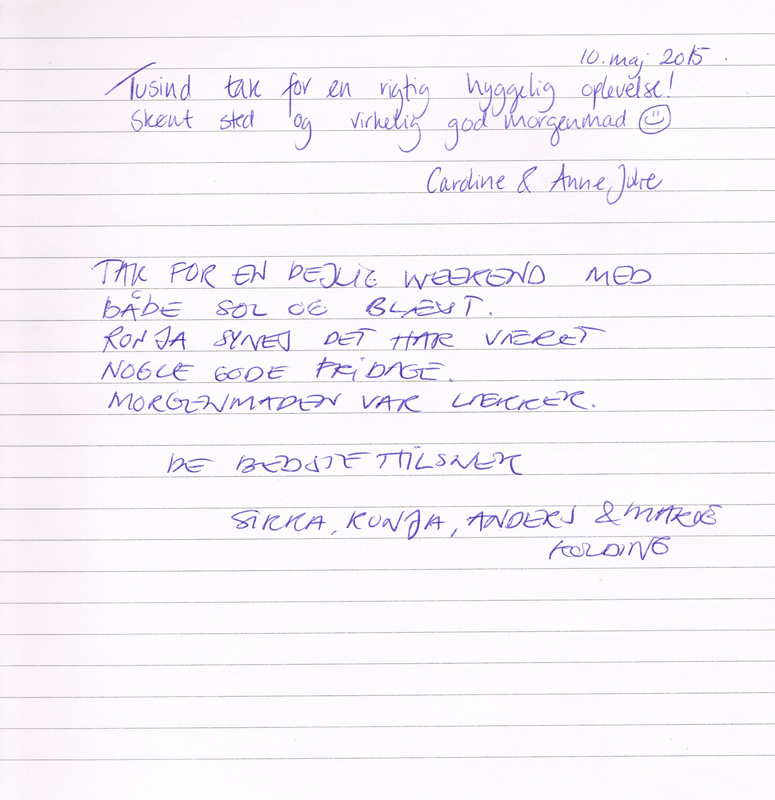 10. maj 2015.
Tusind tak for en rigtig hyggelig oplevelse!
Skønt sted og virkelig god morgenmad ☺
Caroline & Anne Julie
TAK FOR EN DEJLIG WEEKEND MED
BÅDE SOL OG BLÆST.
RONJA SYNES DET HAR VÆRET
NOGLE GODE FRIDAGE.
MORGENMADEN VAR LÆKKER.
DE BEDSTE HILSNER
SIRKA, RONJA, ANDERS &
KOLDING